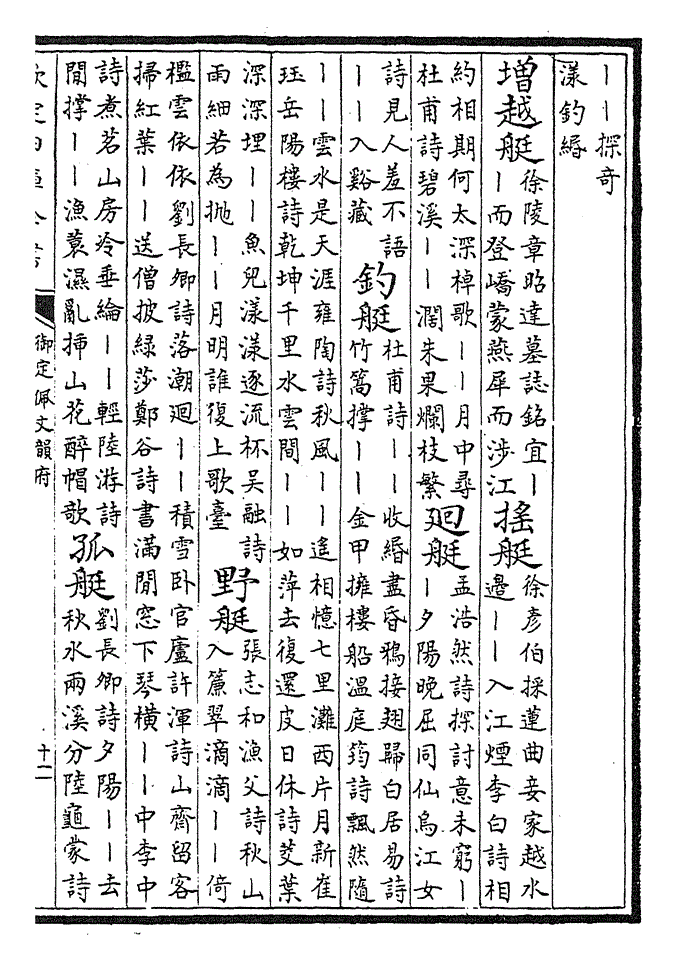 丨丨探奇
漾釣緡
增越艇
徐陵章昭達墓誌銘宜丨
丨而登嶠蒙燕犀而涉江
搖艇
徐彦伯採蓮曲妾家越水
邉丨丨入江煙李白詩相
約相期何太深棹歌丨丨月中尋
杜甫詩碧溪丨丨濶朱果爛枝繁
廻艇
孟浩然詩探討意未窮丨
丨夕陽晚屈同仙烏江女
詩見人羞不語
丨丨入谿藏
釣艇
杜甫詩丨丨收緡盡昏鴉接翅歸白居易詩
竹篙撑丨丨金甲擁樓船溫庭筠詩飄然隨
丨丨雲水是天涯雍陶詩秋風丨丨遙相憶七里灘西片月新崔
珏岳陽樓詩乾坤千里水雲間丨丨如萍去復還皮日休詩芰葉
深深埋丨丨魚兒漾漾逐流杯吴融詩
雨細若為抛丨丨月明誰復上歌臺
野艇
張志和漁父詩秋山
入簾翠滴滴丨丨倚
檻雲依依劉長卿詩落潮廻丨丨積雪卧官廬許渾詩山齋留客
掃紅葉丨丨送僧披綠莎鄭谷詩書滿閒窓下琴横丨丨中李中
詩煮茗山房冷垂綸丨丨輕陸游詩
閒撑丨丨漁蓑濕亂揷山花醉帽歌
孤艇
劉長卿詩夕陽丨丨去
秋水兩溪分陸龜蒙詩
欽定四庫全書
御定佩文韻府
十二